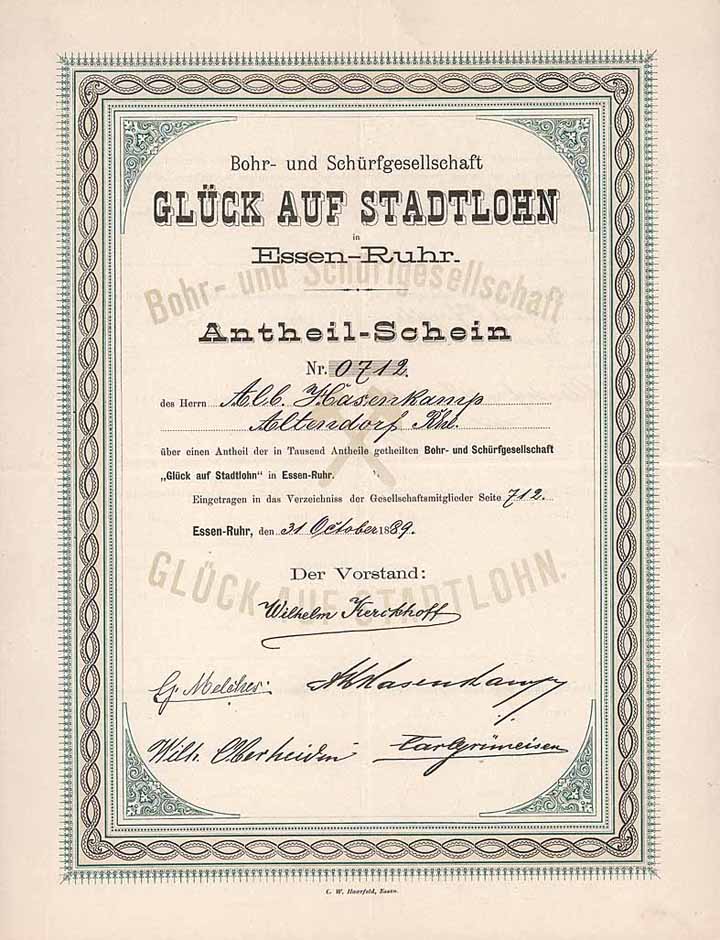 Bohr- und Schürfgesellschaft
GLÜCK AUF STADTLOHN
in
Essen-Ruhr.
Bohr- und Schürfgesellschaft
Antheil-Schein
Nr. 0712.
des Herrn Alb. Hasenkamp
Altendorf Rhl.
über einen Antheil der in Tausend Antheile getheilten Bohr- und Schürfgesellschaft
„Glück auf Stadtlohn" in Essen-Ruhr.
Eingetragen in das Verzeichniss der Gesellschaftsmitglieder Seite 712.
Essen-Ruhr, den 31 October 1889.
GLÜCK AUF STARTLOHN.
Der Vorstand:
Wilhelm Kerckhoff
Hasenkamp
Wilh. Oberheiden Carl Grümeisen
C. W. Haarfeld, Essen.